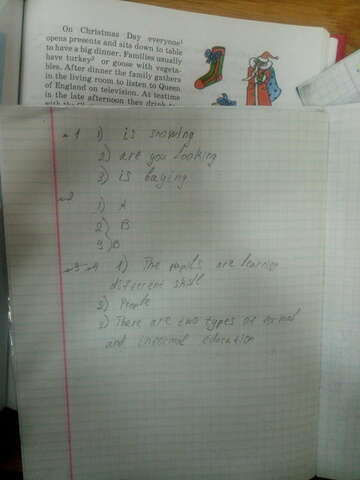 On Christmas Day everyone¹
opens presents and sits down to table
to have a big dinner. Families usually
have turkey² or goose with vegeta-
bles. After dinner the family gathers
in the living room to listen to Queen
of England on television. At teatime
in the late afternoon they drink
№1 1) is snowing
2) are you looking
3) is buying
№2
1) A
2) B
3) B
1) The pupils are
different skill
2) People
3) There are two types of
and informal education